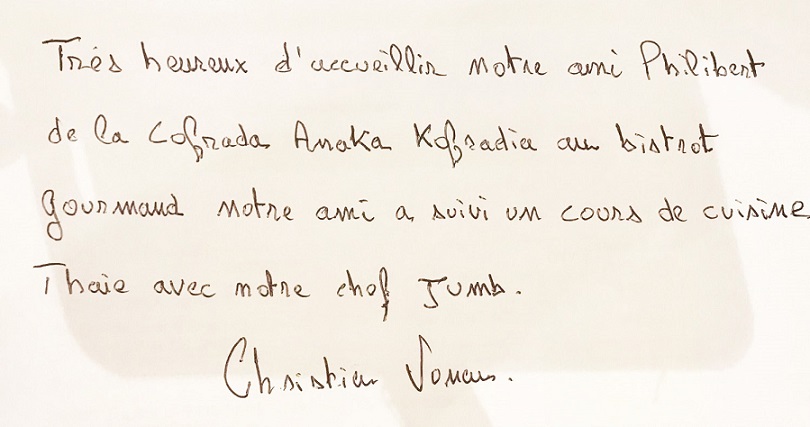 Très heureux d'accueillir notre ami Philibert
de la Cofrada Anaka Kofradia au bistrot
gourmand notre ami a suivi un cours de cuisine
Thaie avec notre chef Jumb.
Christian